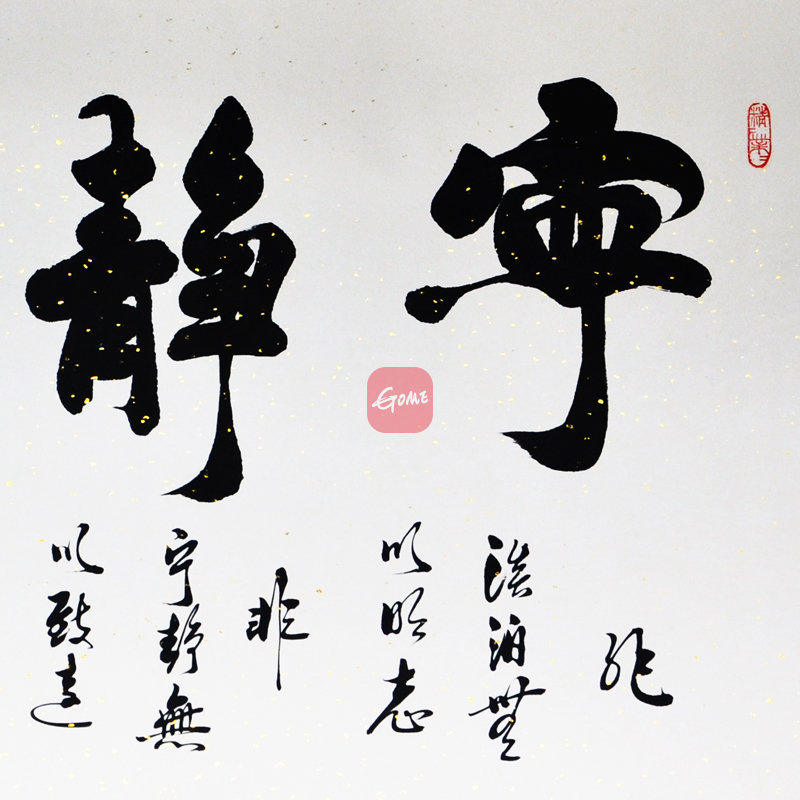 寧靜
非
淡泊無
以明志
非
宁静無
以致遠
GOME